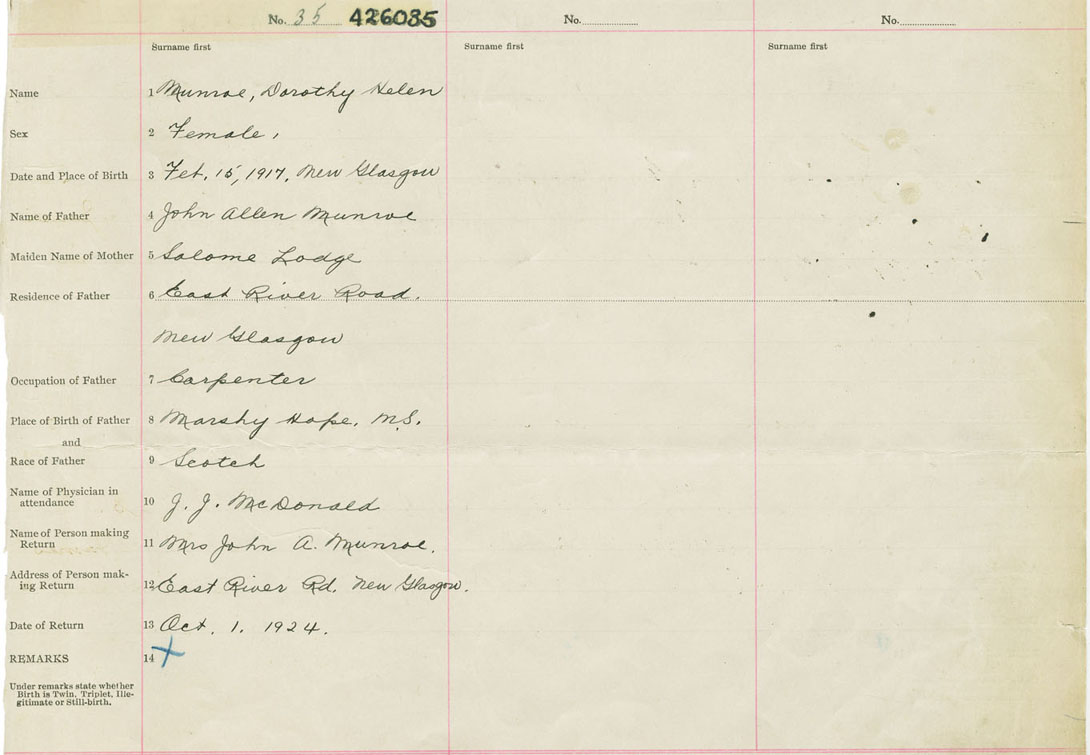 No. 35 426085 No. No.
Surname first Surname first Surname first
Name 1 Munroe, Dorothy Helen
Sex 2 Female,
Date and Place of Birth 3 Feb. 15, 1917, New Glasgow
Name of Father 4 John Allen Munroe
Maiden Name of Mother 5 Salome Lodge
Residence of Father 6 East River Road.
New Glasgow
Occupation of Father 7 Carpenter
Place of Birth of Father 8 Marshy Hope, N.S.
and
Race of Father 9 Scotch
Name of Physician in
attendance 10 J. J. McDonald
Name of Person making
Return 11 Mrs John A. Munroe.
Address of Person mak-
ing Return 12 East River Rd. New Glasgow.
Date of Return 13 Oct. 1. 1924.
REMARKS 14 X
Under remarks state whether
Birth is Twin, Triplet, Ille-
gitimate or Still-birth.